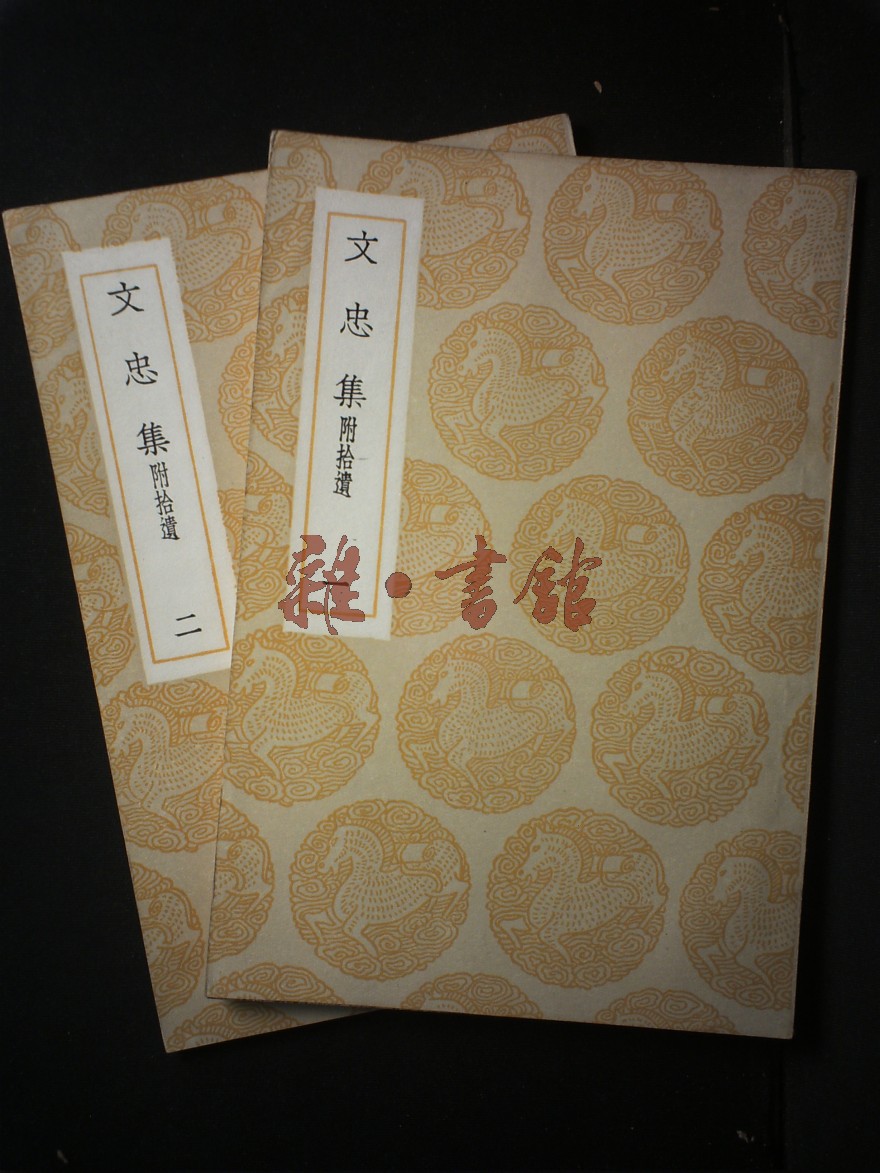 文忠集附拾遺 一
文忠集附拾遺 二
雜·書館